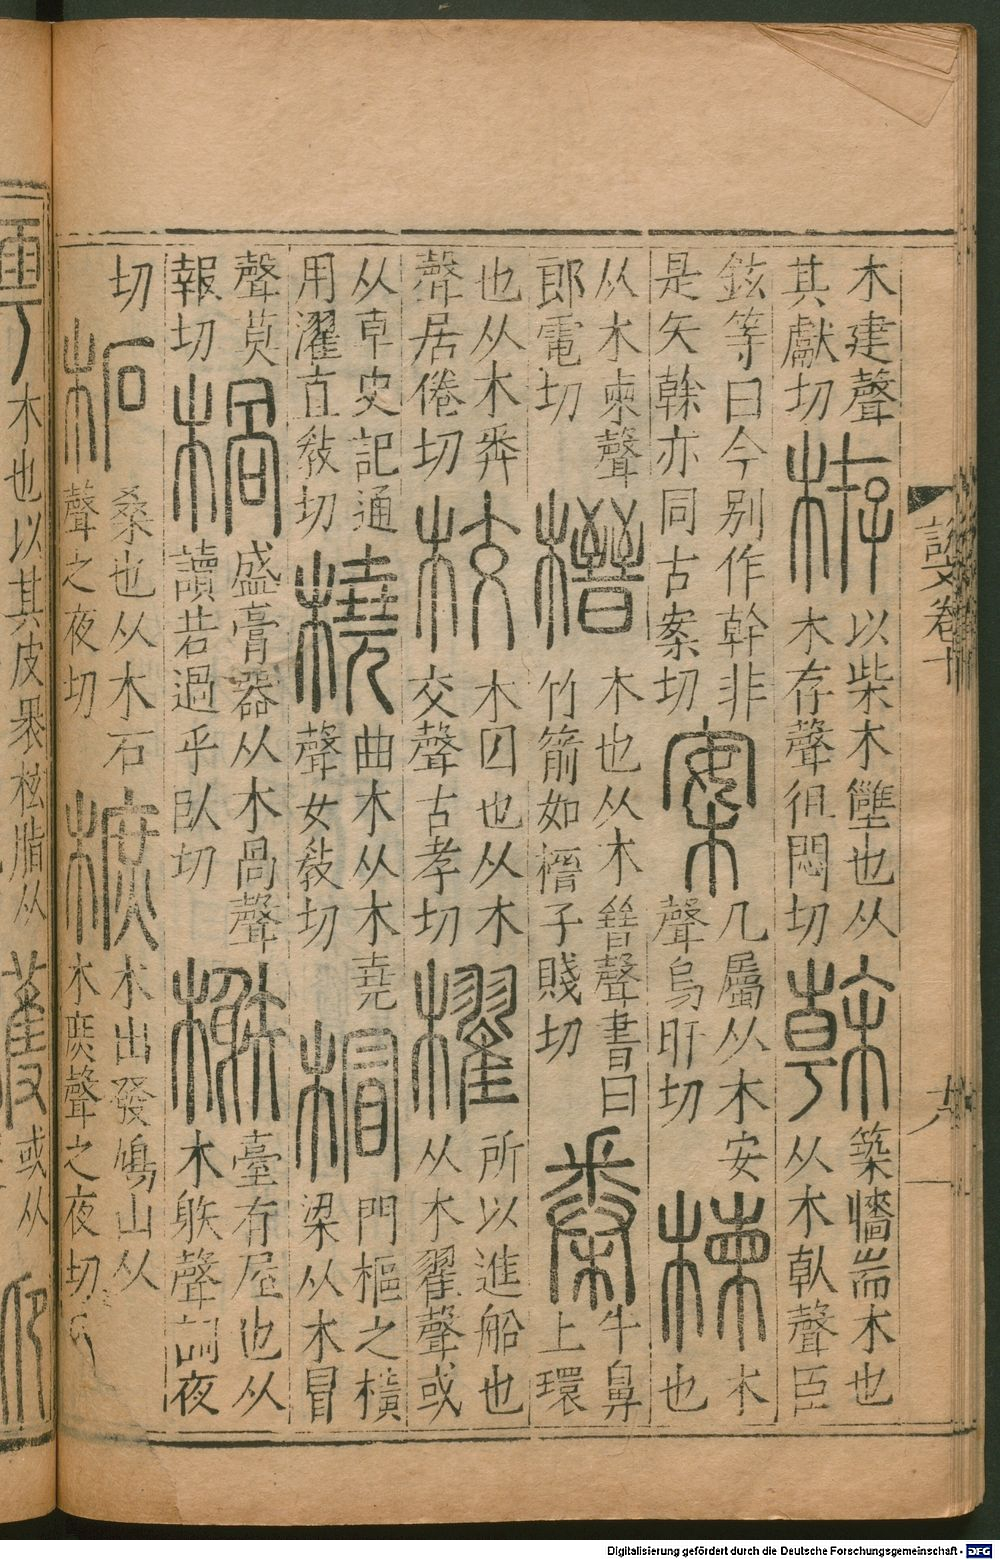 説文卷十
木建聲其獻切栫以柴木雝也从木存聲徂悶切榦築牆耑木也从木倝聲臣
鉉等曰今别作幹非是矢榦亦同古案切案几屬从木安聲烏旰切楝木也
从木柬聲郎電切榗木也从木晉聲書曰竹箭如榗子賤切桊牛鼻上環
也从木𢍏聲居倦切校木囚也从木交聲古孝切櫂所以進船也从木翟聲或
从卓史記通用濯直敎切橈曲木从木堯聲女敎切㮘門樞之橫梁从木冒
聲莫報切楇盛膏器从木咼聲讀若過乎臥切榭臺有屋也从木躲聲詞夜
切柘桑也从木石聲之夜切樜木出發鳩山从木庶聲之夜切
木也以其皮裹松脂从 或从
Digitalisierung gefördert durch die Deutsche Forschungsgemeinschaft - DFG